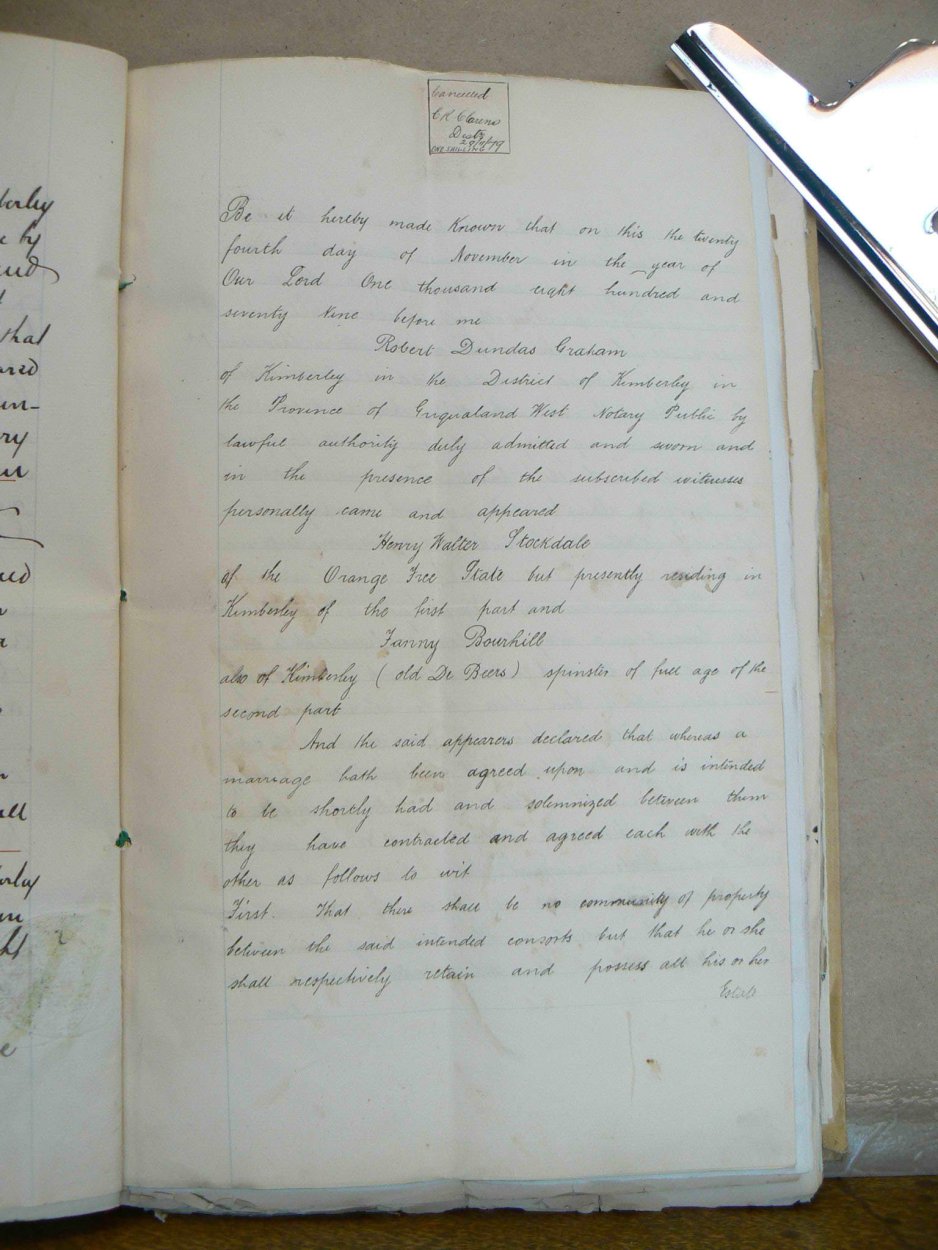 Cancelled
ONE SHILLING
Be it hereby made Known that on this the twenty
fourth day of November in the year of
Our Lord One thousand eight hundred and
seventy Nine before me
Robert Dundas Graham
of Kimberley in the District of Kimberley in
the Province of Griqualand West Notary Public by
lawful authority duly admitted and sworn and
in the presence of the subscribed witnesses
personally came and appeared
Henry Walter Stockdale
of the Orange Free State but presently residing in
Kimberley of the first part and
Fanny Bourhill
also of Kimberley (old De Beers) spinster of full age of the
second part
And the said appearers declared that whereas a
marriage hath been agreed upon and is intended
to be shortly had and solemnized between them
they have contracted and agreed each with the
other as follows to wit
First. That there shall be no community of property
between the said intended consorts but that he or she
shall respectively retain and possess all his or her
Estate